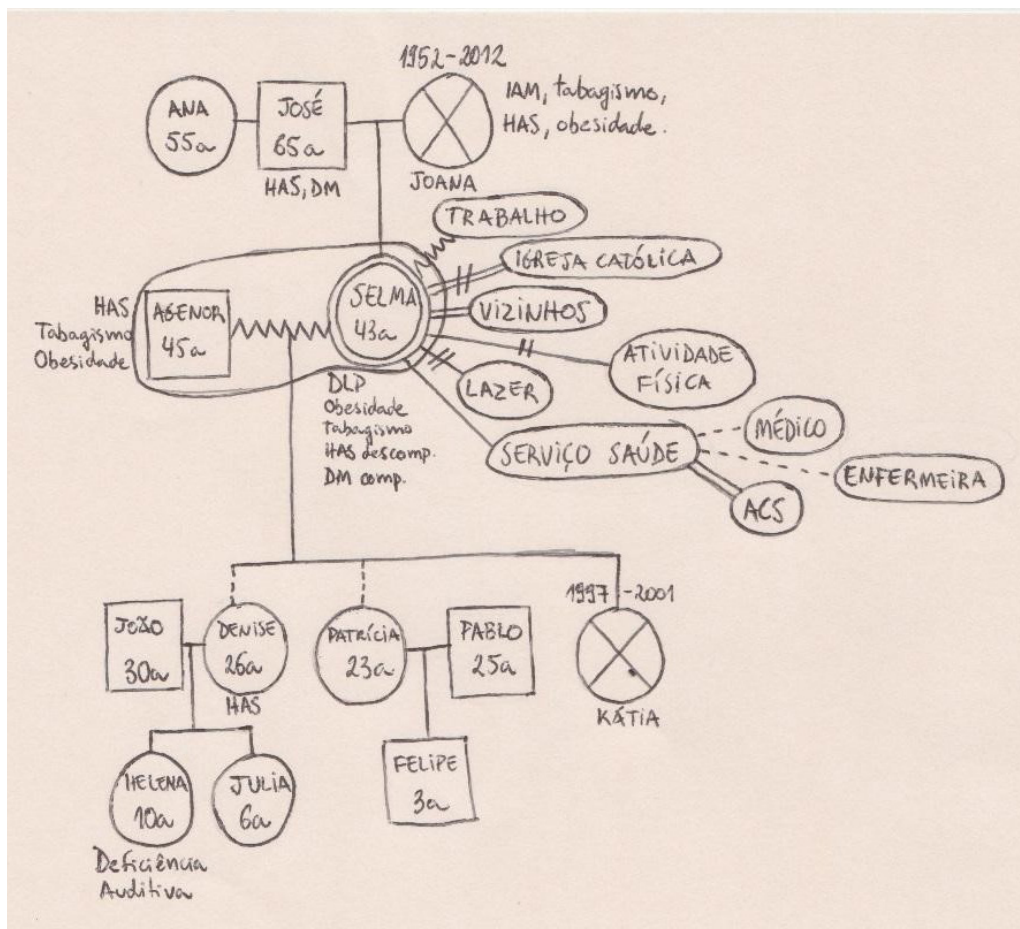 1952-2012
IAM, tabagismo,
HAS, obesidade.
ANA
55a
JOSÉ
65a
HAS, DM
JOANA
TRABALHO
IGREJA CATÓLICA
VIZINHOS
ATIVIDADE
FÍSICA
LAZER
SERVIÇO SAÚDE
MÉDICO
ENFERMEIRA
ACS
HAS
Tabagismo
Obesidade
AGENOR
45a
SELMA
43a
DLP
Obesidade
tabagismo
HAS descomp.
DM comp.
1997-2001
JOÃO
30a
DENISE
26a
HAS
PATRÍCIA
23a
PABLO
25a
KÁTIA
HELENA
10a
JULIA
6a
FELIPE
3a
Deficiência
Auditiva